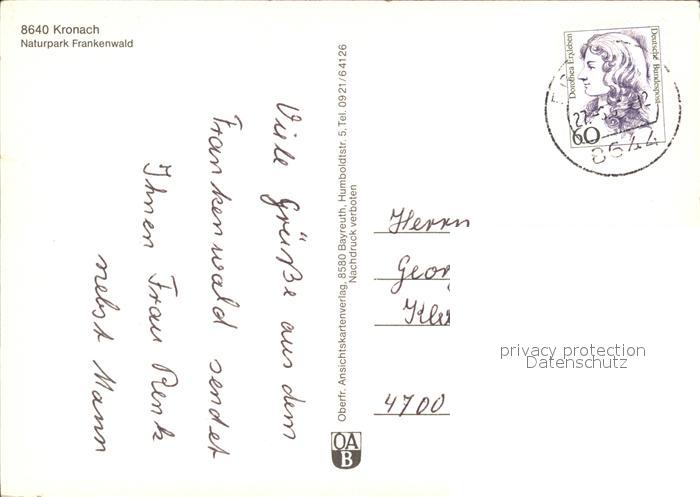 8640 Kronach
Naturpark Frankenwald
Viele Grüße aus dem
Frankenwald sendet
Ihnen Frau Renk
nebst Mann
Oberfr. Ansichtskartenverlag, 8580 Bayreuth, Humboldtstr. 5, Tel. 0921/64126
Nachdruck verboten
OA
B
Dorothea Erxleben
Deutsche Bundespost
60
8644
Herrn
Geor
4700
privacy protection
Datenschutz